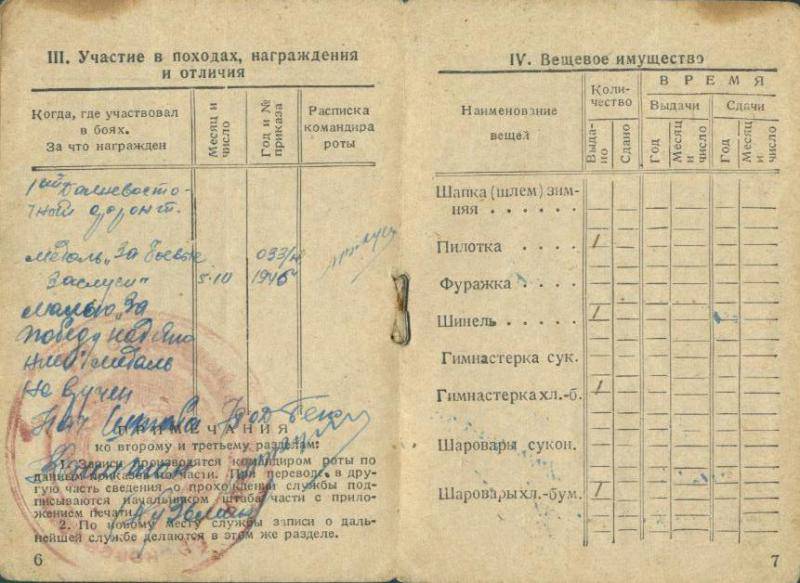 III. Участие в походах, награждения
и отличия
Когда, где участвовал
в боях.
За что награжден
Месяц и
число
Год и №
приказа
Расписка
командира
роты
1ый Дальневосто-
чный фронт.
медаль „За боевые
заслуги"
5.10
033/н
1945
медаль „За
победу над Япо
нией" медаль
не вручен
Нач Штаба
Капитан
ПРИМЕЧАНИЯ
ко второму и третьему разделам:
1. Записи производятся командиром роты по
данным приказов по части. При переводе в дру-
гую часть сведения о прохождении службы под-
писываются начальником штаба части с прило-
жением печати.
2. По новому месту службы записи о даль-
нейшей службе делаются в этом же разделе.
6
IV. Вещевое имущество
Наименование
вещей
Коли-
чество
ВРЕМЯ
Выдачи
Сдачи
Выда-
но
Сдано
Год
Месяц
и
число
Год
Месяц
и
число
Шапка (шлем) зим-
няя . . . . . .
Пилотка . . . . . 1
Фуражка . . . . .
Шинель . . . . . 1
Гимнастерка сук.
Гимнастерка хл.-б. 1
Шаровары сукон.
Шаровары хл.-бум. 1
7